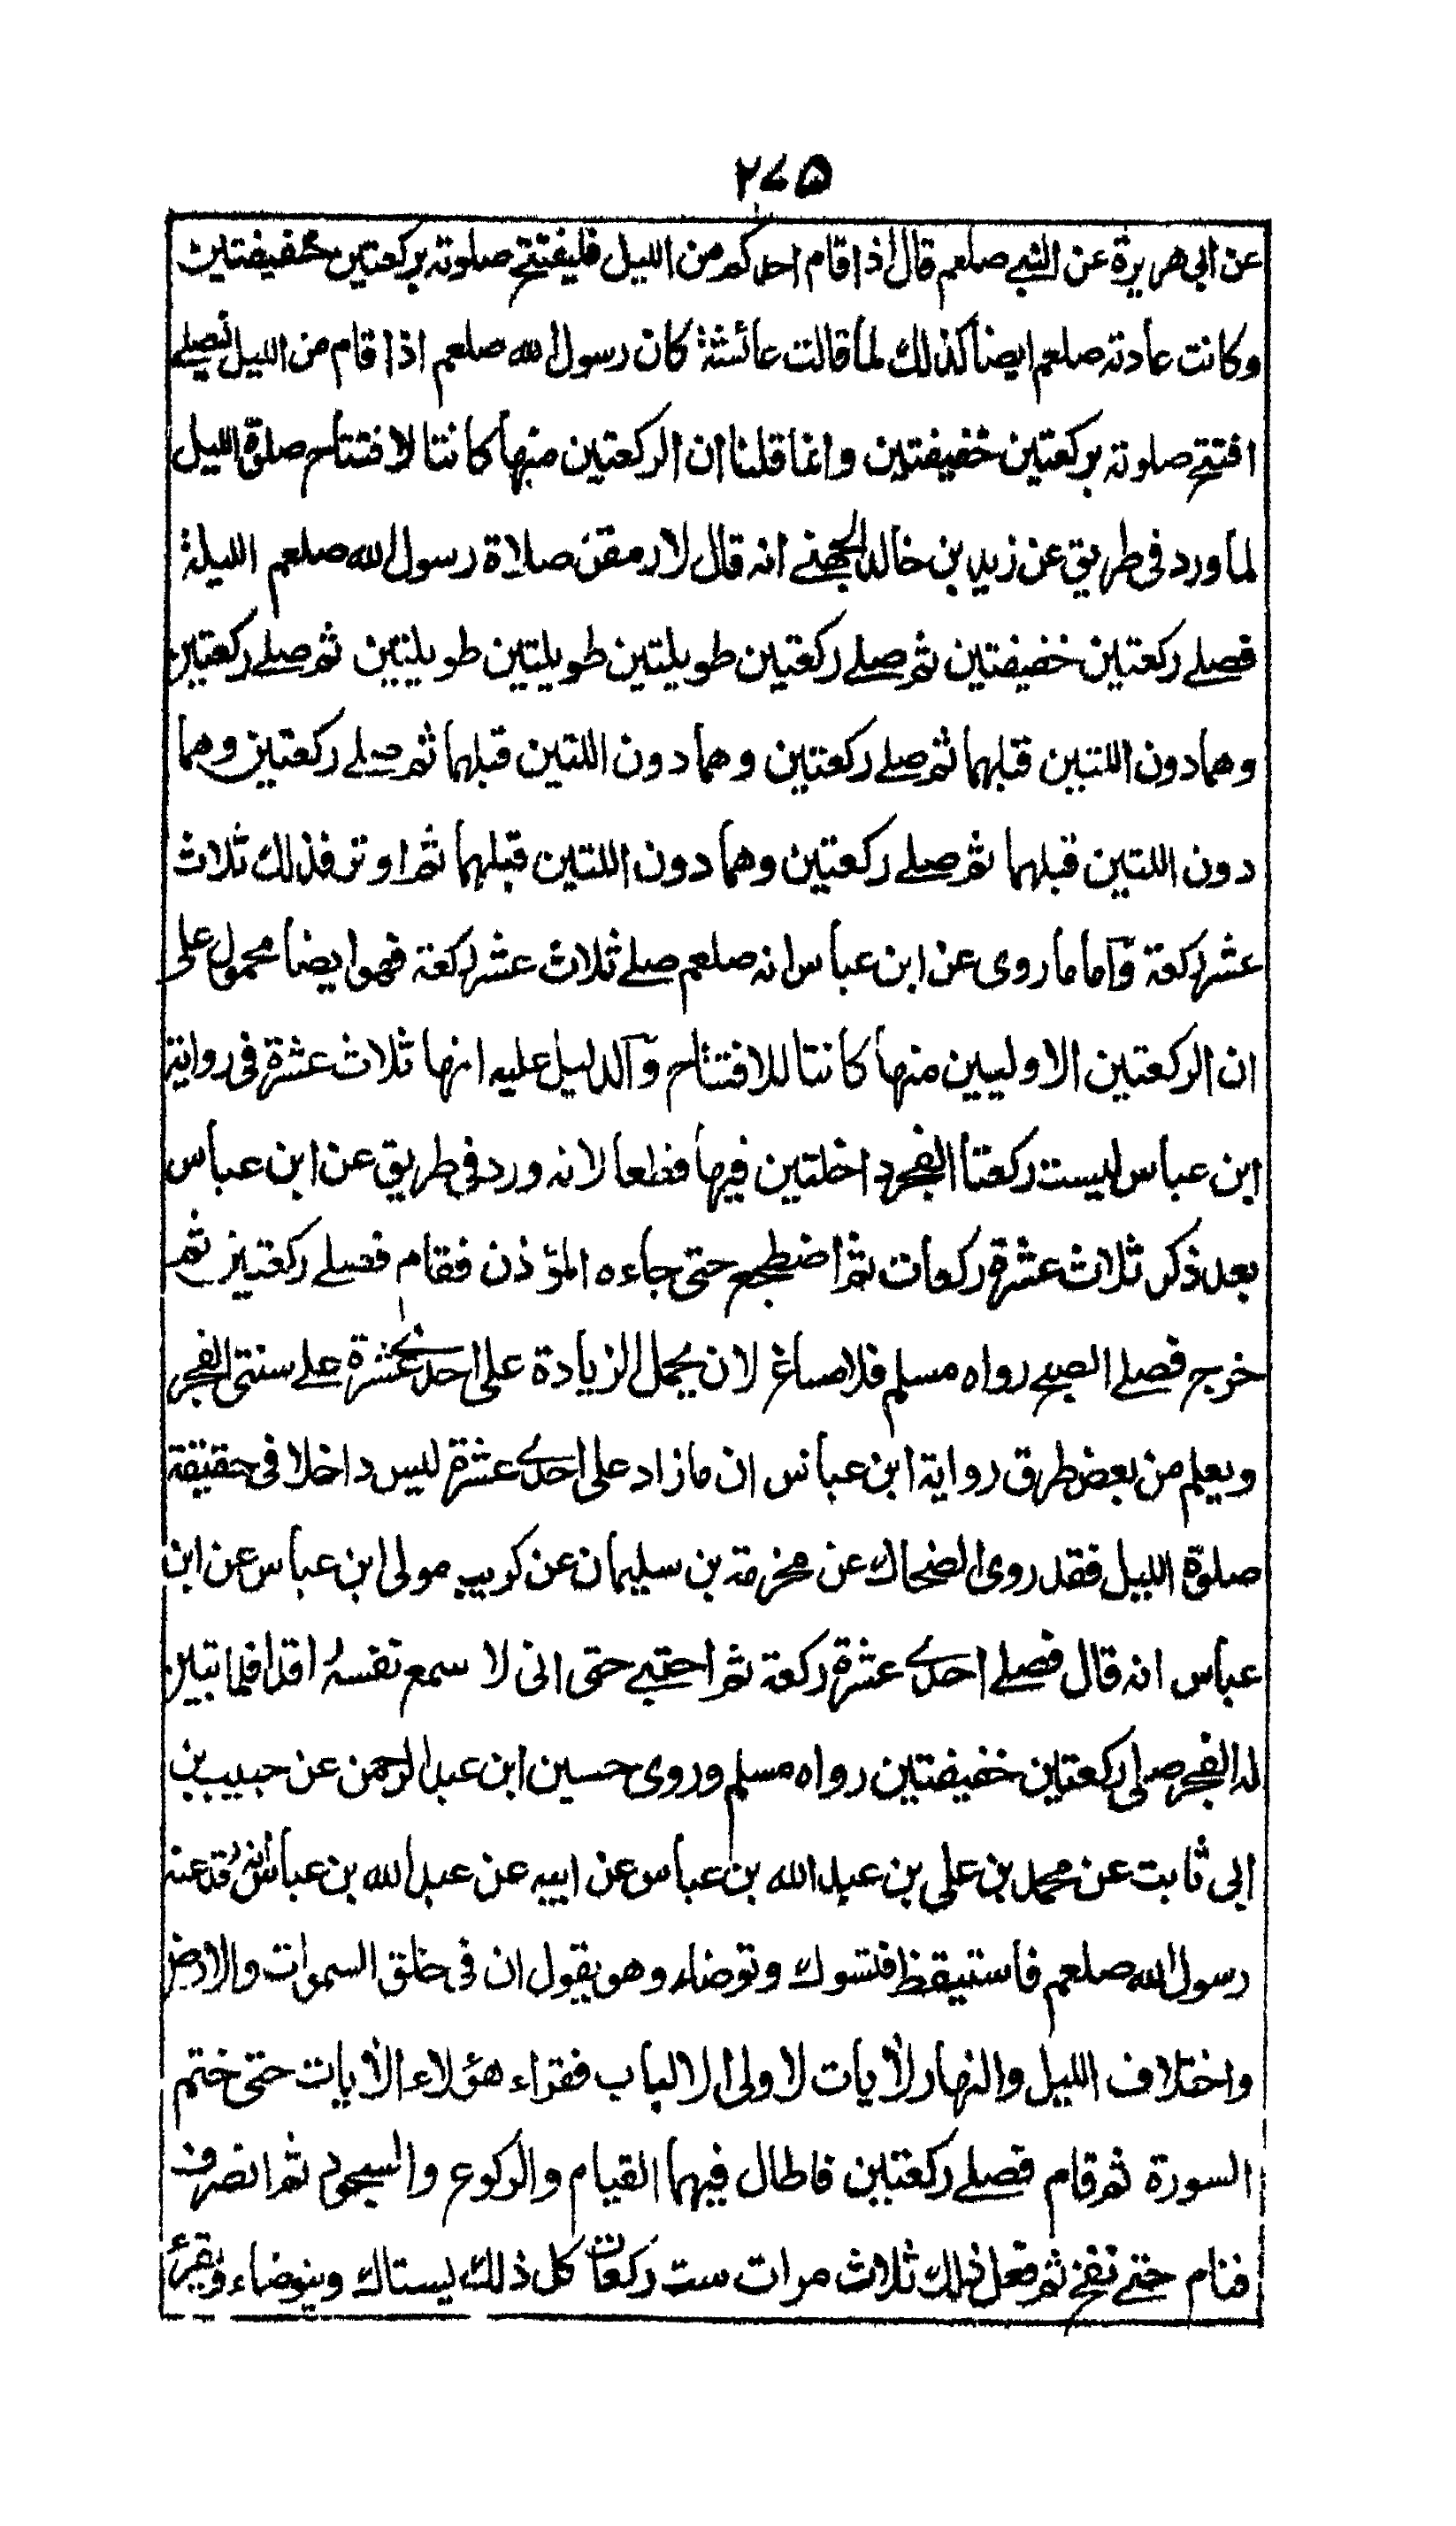 ۲۷۵
عن ابی هریرة عن النبے صلعم قال اذا قام احدکم من اللیل فلیفتتح صلوته برکعتین خفیفتین
وکانت عادته صلعم ایضا کذلك لما قالت عائشة کان رسول الله صلعم اذا قام من اللیل لیصلے
افتتح صلوته برکعتین خفیفتین وانما قلنا ان الرکعتین منها کانتا لافتتاح صلوة اللیل
لما ورد فی طریق عن زید بن خالد الجهنے انه قال لارمقن صلاة رسول الله صلعم اللیلة
فصلے رکعتین خفیفتین ثم صلے رکعتین طویلتین طویلتین طویلتین ثم صلے رکعتین
وهما دون اللتین قبلهما ثم صلے رکعتین وهما دون اللتین قبلهما ثم صلے رکعتین وهما
دون اللتین قبلهما ثم صلے رکعتین وهما دون اللتین قبلهما ثم اوتر فذلك ثلاث
عشر رکعة وآما ما روی عن ابن عباس انه صلعم صلے ثلاث عشر رکعة فهو ایضا محمول علی
ان الرکعتین الاولیین منها کانتا للافتتاح وآلدلیل علیه انها ثلاث عشرة فی روایة
ابن عباس لیست رکعتا الفجر داخلتین فیها قطعا لانه ورد فی طریق عن ابن عباس
بعد ذکر ثلاث عشرة رکعات ثم اضطجع حتی جاءه المؤذن فقام فصلے رکعتین ثم
خرج فصلے الصبح رواه مسلم فلا مساغ لان یحمل الزیادة علی احدے عشرة علے سنتی الفجر
ویعلم من بعض طرق روایة ابن عباس ان ما زاد علی احدے عشرة لیس داخلا فی حقیقة
صلوة اللیل فقد روی الضحاك عن مخرمة بن سلیمان عن کریب مولی ابن عباس عن ابن
عباس انه قال فصلے احدے عشرة رکعة ثم احتبے حتی انی لا سمع نفسهُ اقدا فلما تبین
له الفجر صلی رکعتین خفیفتین رواه مسلم وروی حسین ابن عبد الرحمن عن حبیب بن
ابی ثابت عن محمد بن علی بن عبد الله بن عباس عن ابیه عن عبد الله بن عباس انهُ رقد عند
رسول الله صلعم فاستیقظ فتسوك وتوضاء وهو یقول ان فی خلق السموات والارض
واختلاف اللیل والنهار لأیات لاولی الالباب فقراء هؤلاء الأیات حتی ختم
السورة ثم قام فصلے رکعتین فاطال فیهما القیام والرکوع والسجود ثم انصرف
فنام حتے نفخ ثم فعل ذلك ثلاث مرات ست رکعات کل ذلك یستاك ویتوضاء ویقرئ